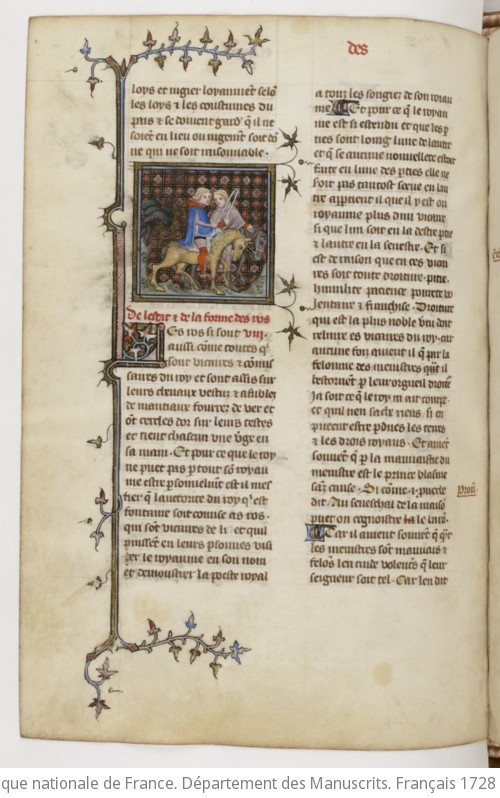 des
loys et iugier loyaument selo
les loys ⁊ les coustumes du
pais ⁊ se doiuent gard' q̃ il ne
soiēt en lieu ou iugemt̃ soit do
ne qui ne soit raisonnable.
De lestat ⁊ de la forme des ros
Es ros si sont viij.
aussi cōme toures q̃
sont vicaires ⁊ cōmis
saires du roy et sont assis sur
leurs cheuaux vestuz ⁊ afublez
de mantiaux fourrez de ver et
ōt cercles dor sur leurs testes
et tient chascun une v̾ge en
sa main. Et pour ce que le roy
ne puet pas p tout sō royau
me estre p̱sonelmt̃ il est mes
tier q̃ lauctorite du roy q̾ est
fontaine soit cōmise as ros.
qui sōt vicaires de li et quil
puissēt en leurs p̱sonnes visi
ter le royaume en son nom
et demonstrer la poeste royal
a tous les songiez de son roiau
me Et pour ce q̃ le royau
me est si estendu et que les p
ties sont loing lune de lautre
et q̃ se aucune nouuellete estoit
faite en lune des pties elle ne
soit pas tantost sceue en lau
tre apptient il que il y est ou
royaume plus dun vicaire
si que lun soit en la destre ptie
⁊ lautre en la senestre. Et si
est de raison que en ces vicai
res soit toute droiture. pitie.
humilite pacience pourete vo
lentaire ⁊ franchise. Droiture
qui est la plus noble v̾tu doit
reluire es vicaires du roy. car
aucune foiz auient il q̃ par la
felonnie des menistres quãt il
bestornēt p leur orgueil droitt̃
Ja soit ce q̃ le roy ni ait coupe.
et quil nen sache riens. si en
pueent estre p̱dues les rentes
⁊ les drois royaus. Et auiēt
souuēt q̃ p la mauuaistie du
menistre est le prince blasme
sãz cause. Si cōme .i. p̱uerbe
dit. Au seneschal de la maisō
puet on cognoistre le baro.
Car il auient souuēt q̃ q̃t
les menistres sōt mauuais ⁊
felōs len cuide volentis q̃ leur
seigneur soit tel. Car len dit
prou.
que nationale de France. Département des Manuscrits. Français 1728